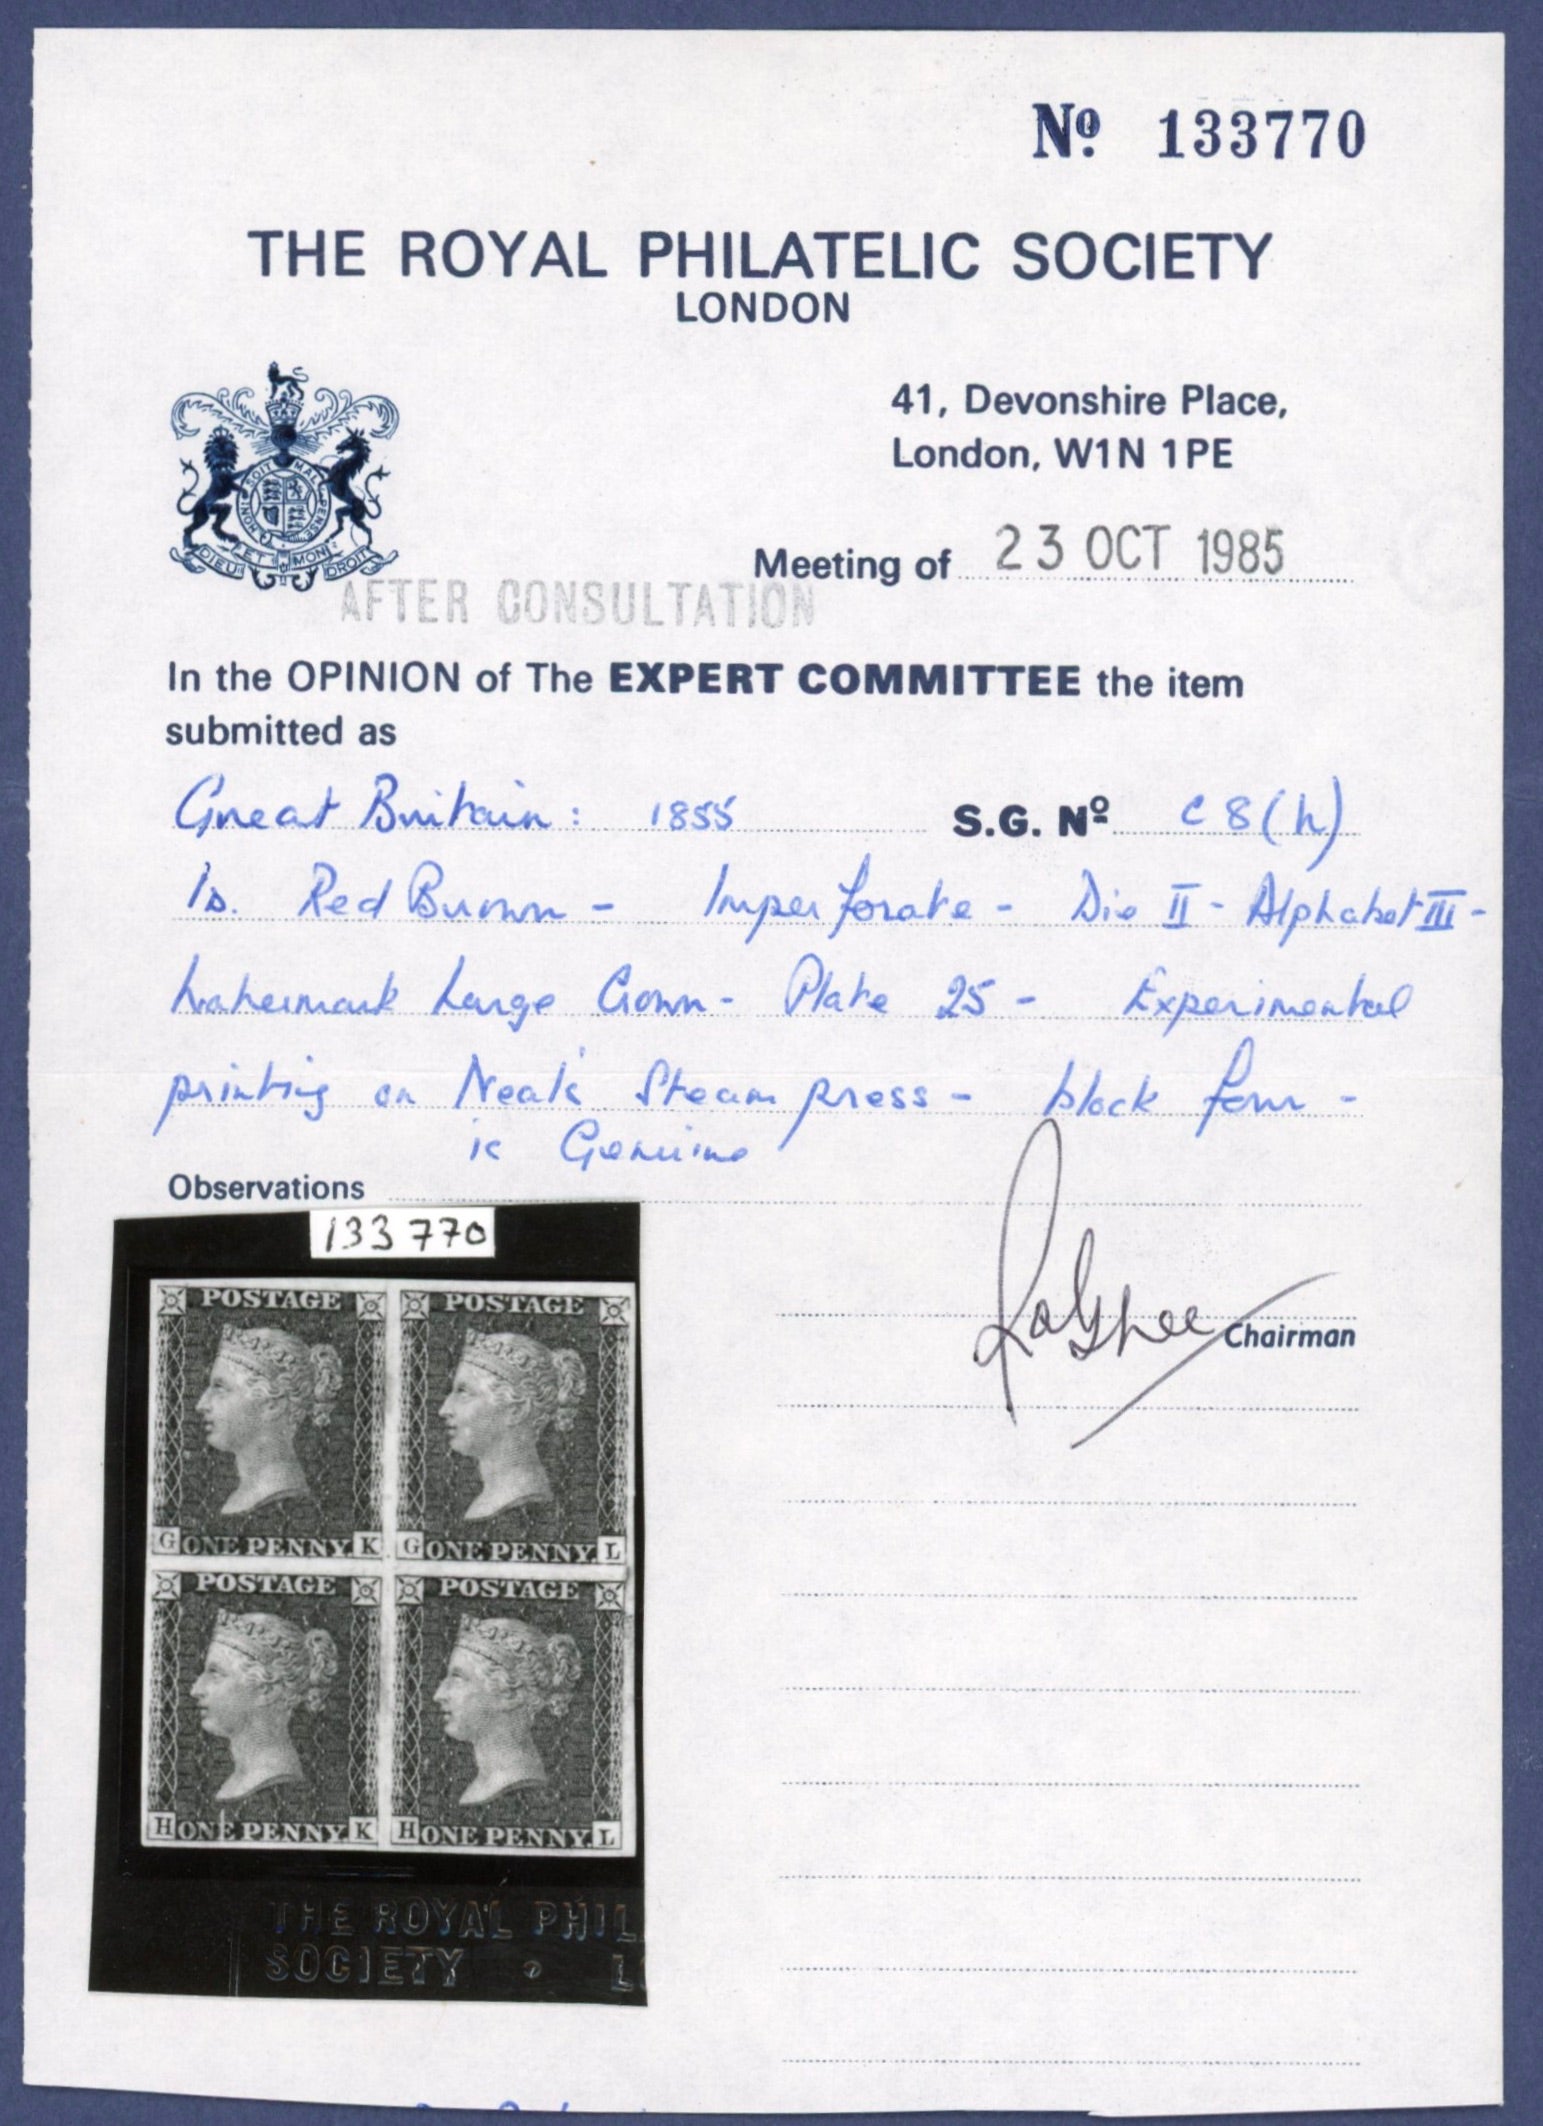 Nº 133770
THE ROYAL PHILATELIC SOCIETY
LONDON
41, Devonshire Place,
London, W1N 1PE
HONI SOIT MAL PENSE
DIEU ET MON DROIT
Meeting of 23 OCT 1985
AFTER CONSULTATION
In the OPINION of The EXPERT COMMITTEE the item
submitted as
Great Britain: 1855 S.G. Nº C8(h)
1d. Red Brown - Imperforate - Die II - Alphabet III -
Watermark Large Crown - Plate 25 - Experimental
printing on Neale's Steam press - block four -
is Genuine
Observations
133770
Chairman
POSTAGE POSTAGE
G ONE PENNY. K G ONE PENNY. L
POSTAGE POSTAGE
H ONE PENNY. K H ONE PENNY. L
THE ROYAL PHIL
SOCIETY • L